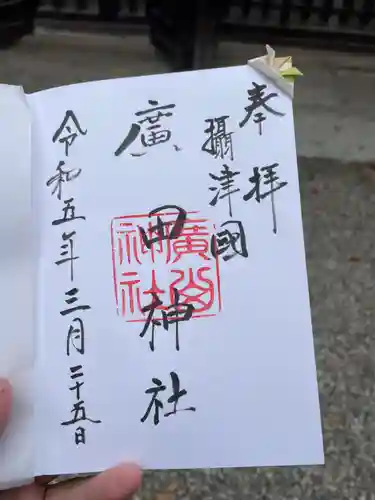 奉拝
攝津國
廣田神社
令和五年三月二十五日